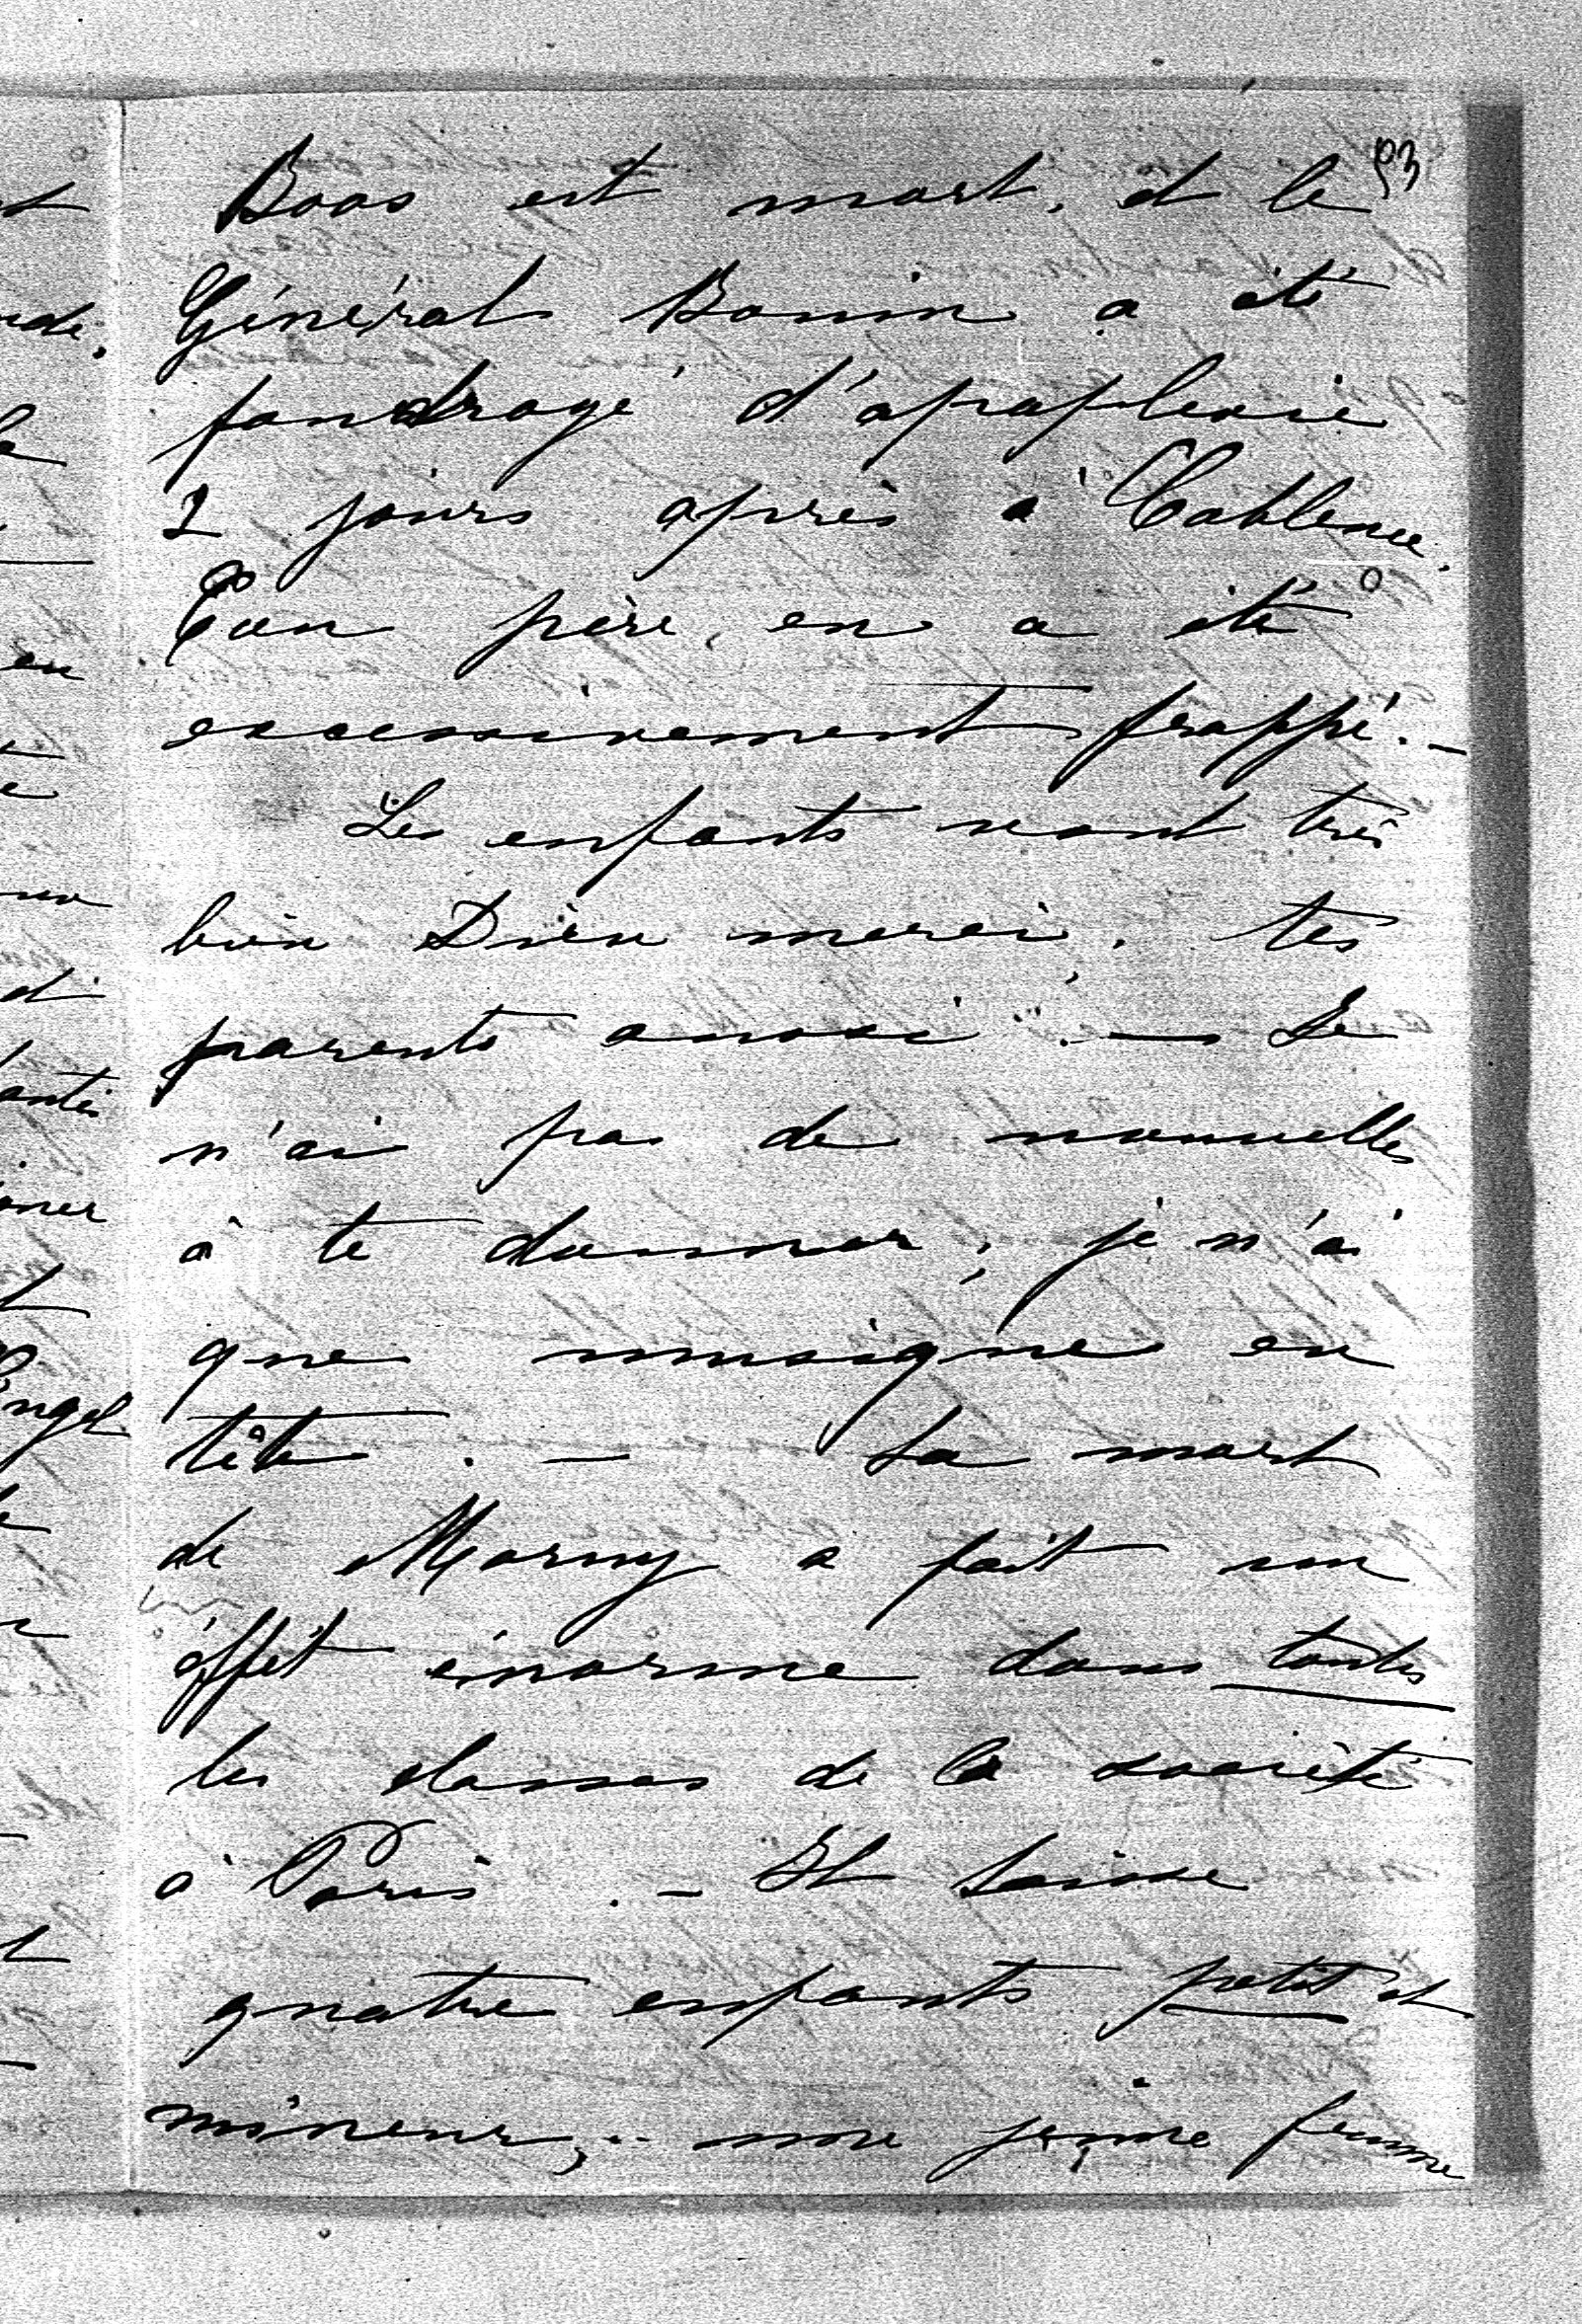 93
Boos est mort, et le
Général Bonin a été
foudroyé d'apoplexie
2 jours après à Coblence.
Ton père, en a été
excessivement frappé. –
Les enfants vont très
bien Dieu merci, tes
parents aussi. — Je
n'ai pas de nouvelles
à te donner; je n'ai
que musique en
tête. — La mort
de Morny a fait un
éffèt énorme dans toutes
les classes de la société
à Paris. – Il laisse
quatre enfants petits et
mineurs, – une jeune femme